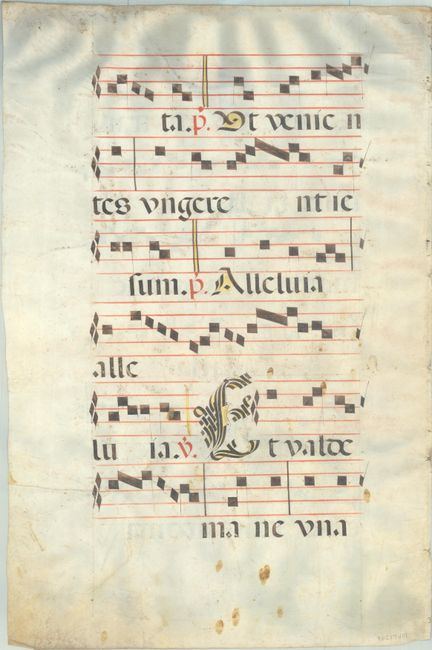 ta. p. Vt venie n
tes vngere nt ie
sum. p. Alleluia
alle
lu ia. v. Et valde
ma ne vna